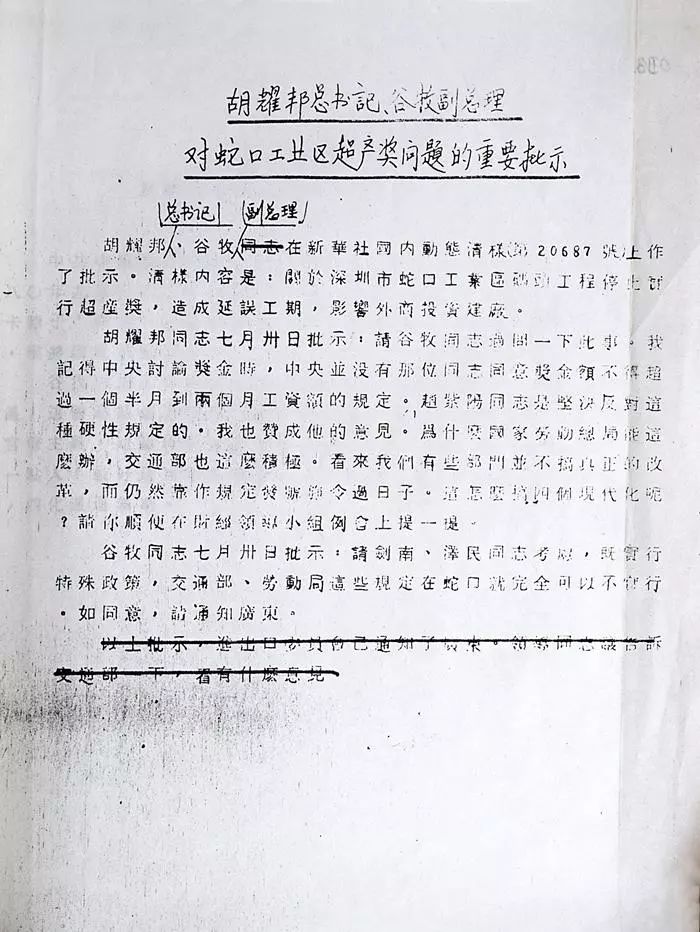 胡耀邦总书记、谷牧副总理
对蛇口工业区超产奖问题的重要批示
总书记 副总理
胡耀邦、谷牧同志在新華社國内動態清樣第20687號上作
了批示。清樣内容是：關於深圳市蛇口工業區碼頭工程停止實
行超産獎，造成延誤工期，影響外商投資建廠。
胡耀邦同志七月卅日批示：請谷牧同志過問一下此事。我
記得中央討論獎金時，中央並没有那位同志同意獎金額不得超
過一個半月到兩個月工資額的規定。趙紫陽同志是堅決反對這
種硬性規定的。我也贊成他的意見。爲什麽國家勞動總局能這
麽辦，交通部也這麽積極。看來我們有些部門並不搞真正的改
革，而仍然靠作規定發號施令過日子。這怎麽搞四個現代化呢
？請你順便在財經領導小組例會上提一提。
谷牧同志七月卅日批示：請劍南、澤民同志考慮，既實行
特殊政策，交通部、勞動局這些規定在蛇口就完全可以不實行
。如同意，請通知廣東。
以上批示，進出口委員會已通知了廣東。領導同志 告訴
交通部一下，看有什麽意見